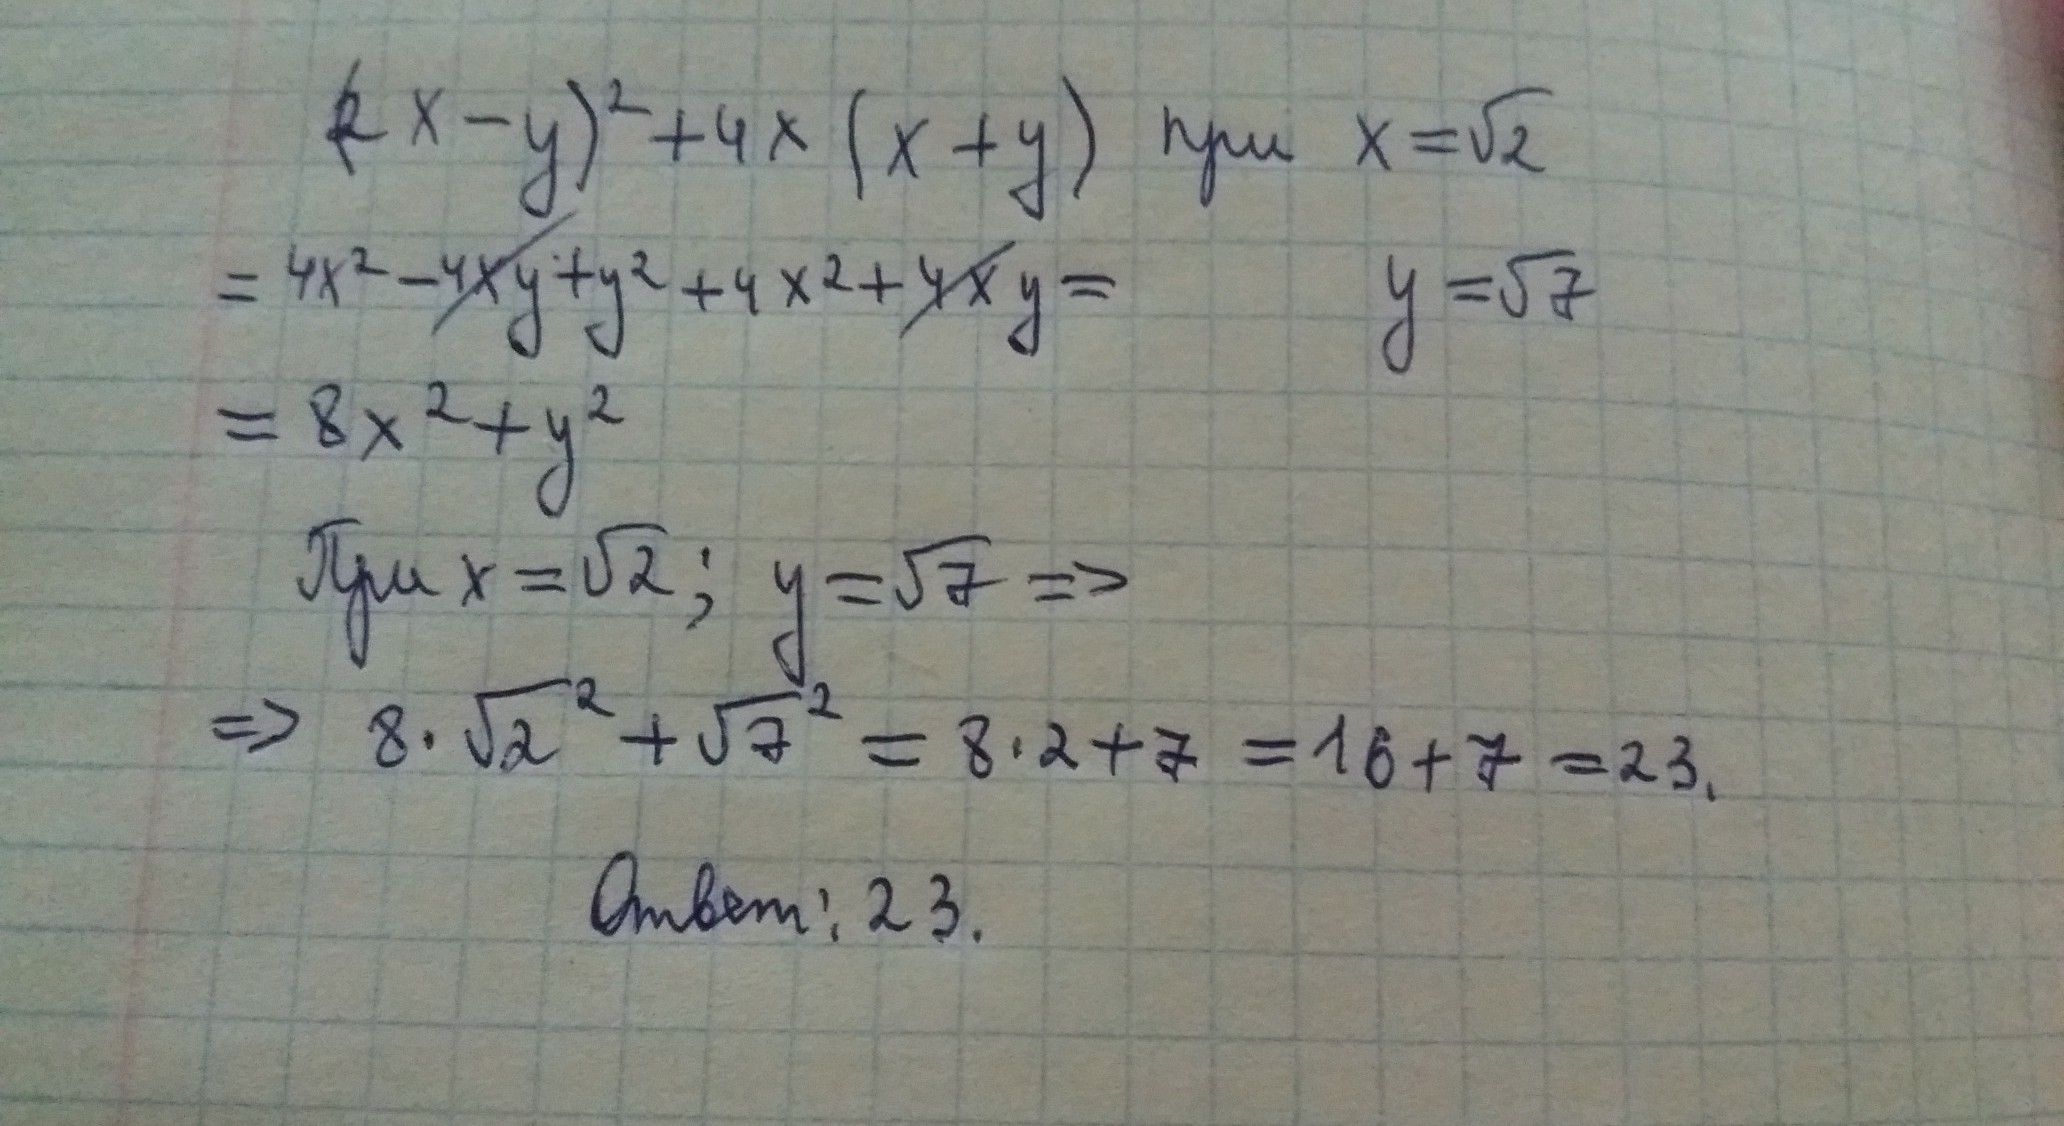 (2x-y)²+4x(x+y) при x=√2
=4x²-4xy+y²+4x²+4xy= y=√7
=8x²+y²
При x=√2; y=√7 =>
=> 8·√2²+√7²=8·2+7=16+7=23.
Ответ: 23.